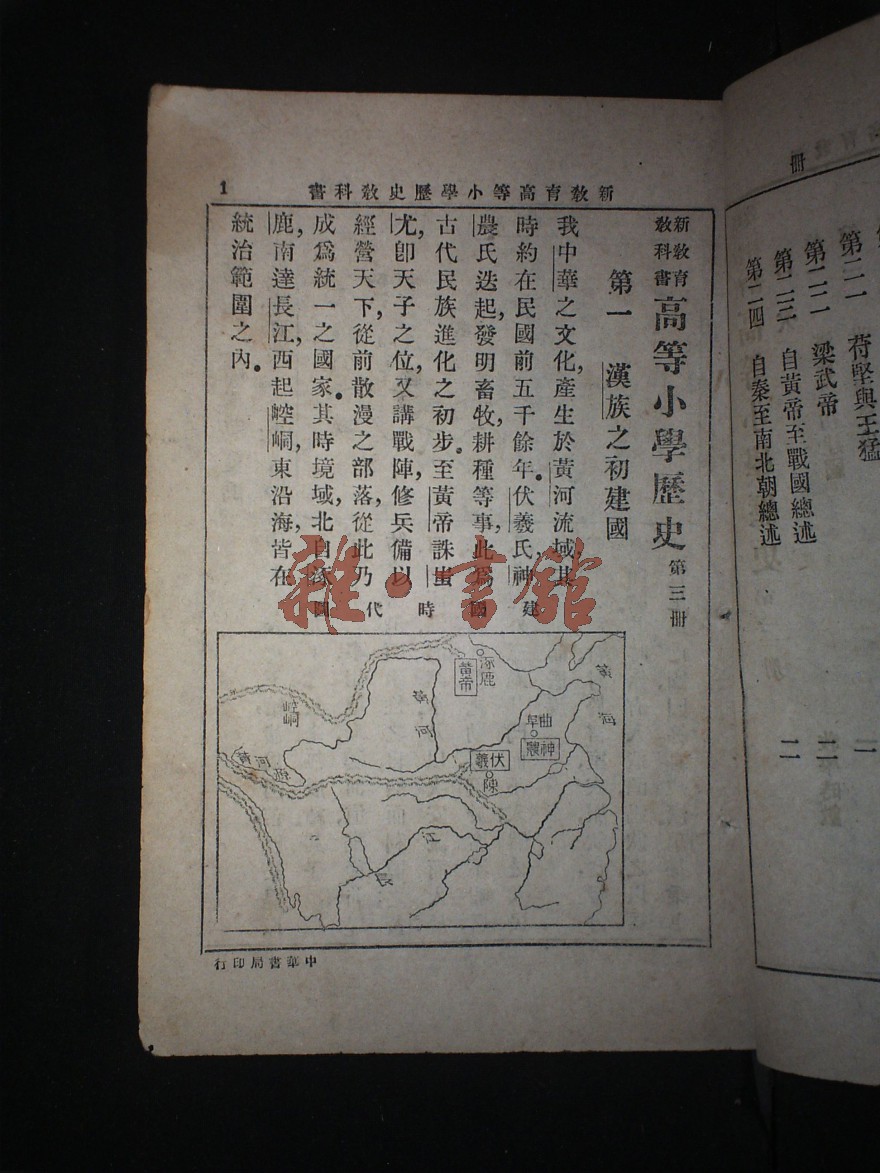 冊
第二一 苻堅與王猛 一
第二二 梁武帝 二
第二三 自黃帝至戰國總述 二
第二四 自秦至南北朝總述
新教育高等小學歷史教科書 1
新教育教科書 高等小學歷史 第三冊
第一 漢族之初建國
我中華之文化,產生於黃河流域,其
時約在民國前五千餘年。伏羲氏,神
農氏迭起,發明畜牧,耕種等事,此爲
古代民族進化之初步。至黃帝誅蚩
尤,卽天子之位,又講戰陣,修兵備,以
經營天下,從前散漫之部落,從此乃
成爲統一之國家。其時境域,北自涿
鹿,南達長江,西起崆峒,東沿海,皆在
統治範圍之內。
建國時代圖
涿鹿
黃帝
崆峒
曲阜
神農
伏羲
陳
黃河
江
長
中華書局印行
雜·書館